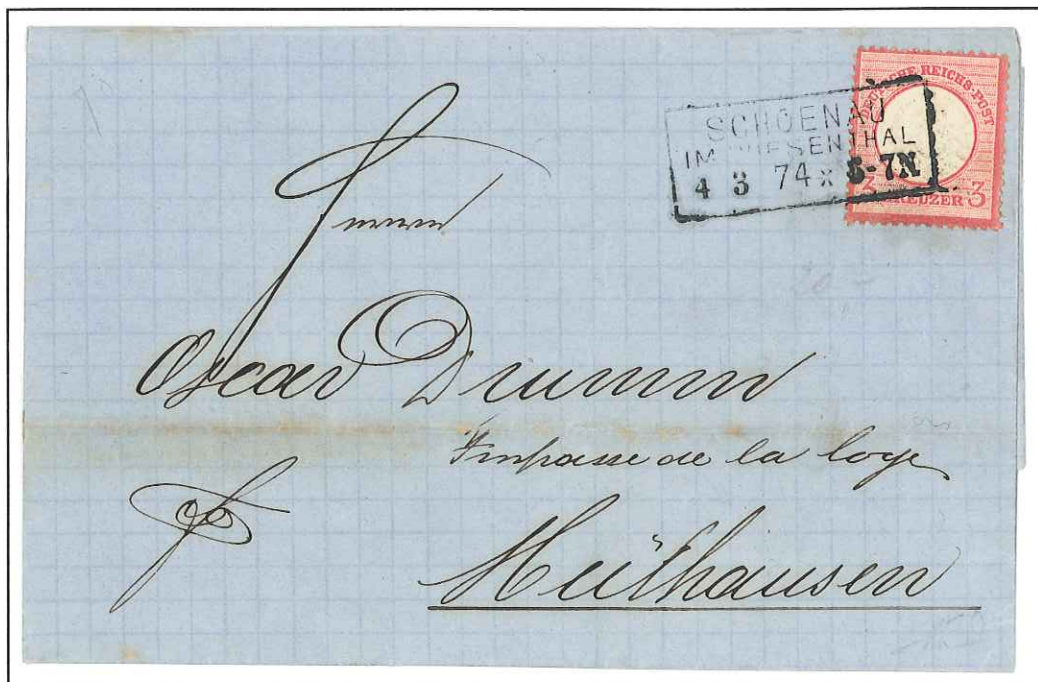 DEUTSCHE REICHS-POST
3 KREUZER 3
SCHOENAU
IM WIESENTHAL
4 3 74 x 5-7N
Herrn
Oscar Drumm
Impasse de la loge
fr
Mülhausen